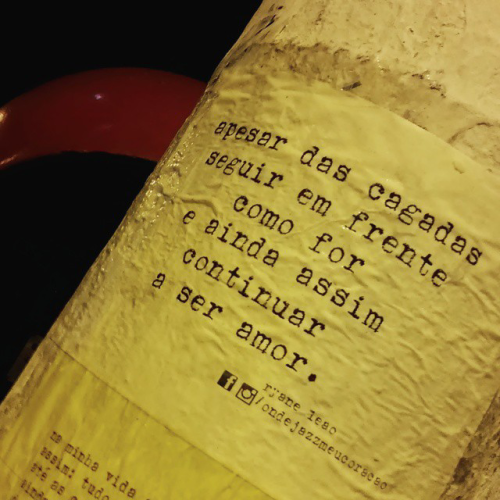 apesar das cagadas
seguir em frente
como for
e ainda assim
continuar
a ser amor.
ryane leao
/ondejazzmeucoracao
na minha vida
assim: tudo
até as